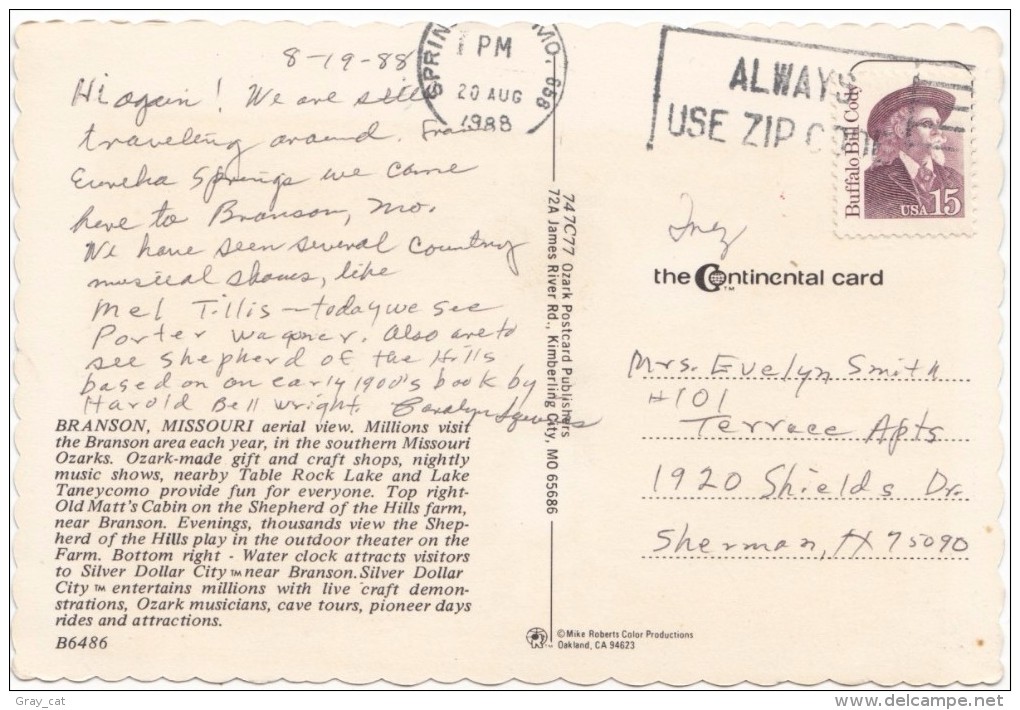 8-19-88
Hi again! We are still
traveling around. From
Eureka Springs we came
here to Branson, Mo.
We have seen several country
musical shows, like
Mel Tillis - today we see
Porter Wagoner. Also are to
see Shepherd of the Hills
based on an early 1900's book by
Harold Bell Wright. Caralyn
BRANSON, MISSOURI aerial view. Millions visit
the Branson area each year, in the southern Missouri
Ozarks. Ozark-made gift and craft shops, nightly
music shows, nearby Table Rock Lake and Lake
Taneycomo provide fun for everyone. Top right-
Old Matt's Cabin on the Shepherd of the Hills farm,
near Branson. Evenings, thousands view the Shep-
herd of the Hills play in the outdoor theater on the
Farm. Bottom right - Water clock attracts visitors
to Silver Dollar City™ near Branson. Silver Dollar
City™ entertains millions with live craft demon-
strations, Ozark musicians, cave tours, pioneer days
rides and attractions.
B6486
747C77 Ozark Postcard Publishers
72A James River Rd., Kimberling City, MO 65686
©Mike Roberts Color Productions
Oakland, CA 94623
SPRIN MO. 658
PM
20 AUG
1988
ALWAYS
USE ZIP CODE
Buffalo Bill Cody
USA 15
Inez
the Continental card™
Mrs. Evelyn Smith
#101
Terrace Apts
1920 Shields Dr.
Sherman, TX 75090
Gray_cat
delcampe.net